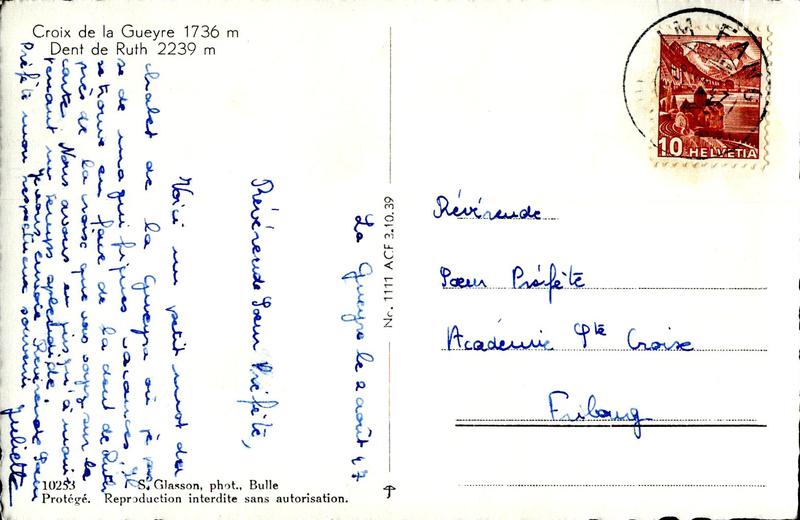 Croix de la Gueyre 1736 m
Dent de Ruth 2239 m
La Gueyre le 2 août 47
Révérende Sœur Préfète,
Voici un petit mot du
chalet de la Gueyre où je pas
se de magnifiques vacances. Il
se trouve en face de la dent de Ruth
près de la croix que vous voyez sur la
carte. Nous avons eu jusqu'à main
tenant un temps splendide.
Je vous envoie Révérende Sœur
Préfète mon respectueux souvenir
Juliette
10253 S. Glasson, phot., Bulle
Protégé. Reproduction interdite sans autorisation.
No. 1111 ACF 3.10.39
IM FANG
10 HELVETIA
Révérende
Sœur Préfète
Académie Ste Croixe
Fribourg